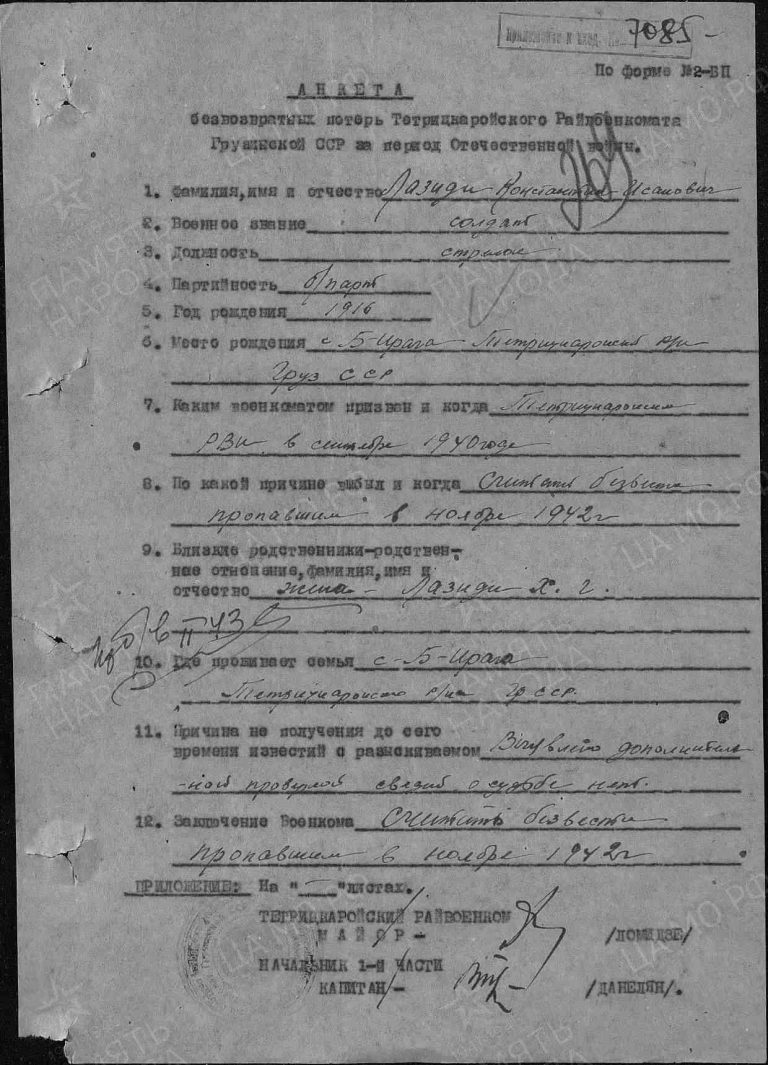 7085 -
По форме №2-БП
АНКЕТА
безвозвратных потерь Тетрицкаройского Райвоенкомата
Грузинской ССР за период Отечественной войны.
1. Фамилия,имя и отчество Лазиди Константин Исакович
2. Военное звание солдат
3. Должность стрелок
4. Партийность б/парт
5. Год рождения 1916
6. Место рождения с Б-Ирага Тетрицкаройский р/н
Груз ССР
7. Каким военкоматом призван и когда Тетрицкаройским
РВК в сентябре 1940 года
8. По какой причине выбыл и когда Считать безвести
пропавшим в ноябре 1942г
9. Близкие родственники-родствен-
ное отношение,фамилия,имя и
отчество жена - Лазиди Х. Г.
10. Где проживает семья с-Б-Ирага
Тетрицкаройского р/на Гр ССР.
11. Причина не получения до сего
времени известий с разыскиваемом дополнитель
-ной проверкой связей о судьбе нет.
12. Заключение Военкома Считать безвести
пропавшим в ноябре 1942г
ПРИЛОЖЕНИЕ: На " — "листах.
ТЕТРИЦКАРОЙСКИЙ РАЙВОЕНКОМ
МАЙОР - /ЛОМИДЗЕ/
НАЧАЛЬНИК 1-Й ЧАСТИ
КАПИТАН/- /ДАНЕЛЯН/.